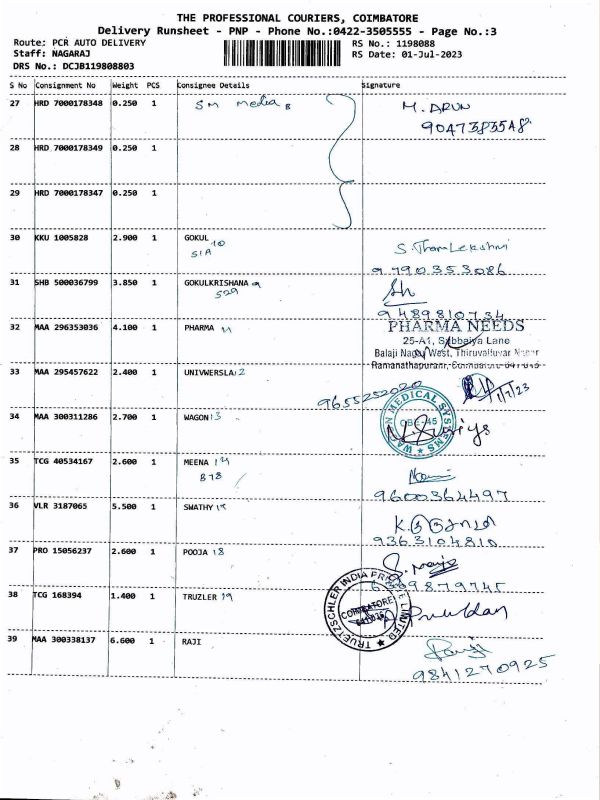 THE PROFESSIONAL COURIERS, COIMBATORE
Delivery Runsheet - PNP - Phone No.:0422-3505555 - Page No.:3
Route: PCR AUTO DELIVERY RS No.: 1198088
Staff: NAGARAJ RS Date: 01-Jul-2023
DRS No.: DCJB119808803
S No Consignment No Weight PCS Consignee Details Signature
27 HRD 7000178348 0.250 1 SM Media M. ARUN
28 HRD 7000178349 0.250 1
29 HRD 7000178347 0.250 1
30 KKU 1005828 2.900 1 GOKUL 10
S1A
9790353086
31 SHB 500036799 3.850 1 GOKULKRISHANA
529
9489810734
32 MAA 296353036 4.100 1 PHARMA 11 PHARMA NEEDS
25-A1, Subbaiya Lane
Balaji Nagar West, Thiruvalluvar Nagar
Ramanathapuram,
33 MAA 295457622 2.400 1 UNIVWERSLA 12
9655252020 1/7/23
34 MAA 300311286 2.700 1 WAGON 13 MEDICAL SYSTEMS
35 TCG 40534167 2.600 1 MEENA 14
B78
9600364497
36 VLR 3187065 5.500 1 SWATHY
9363104810
37 PRO 15056237 2.600 1 POOJA 18
38 TCG 168394 1.400 1 TRUZLER 19 TRUETZSCHLER INDIA PRIVATE LIMITED
COIMBATORE
39 MAA 300338137 6.600 1 RAJI
9841270925